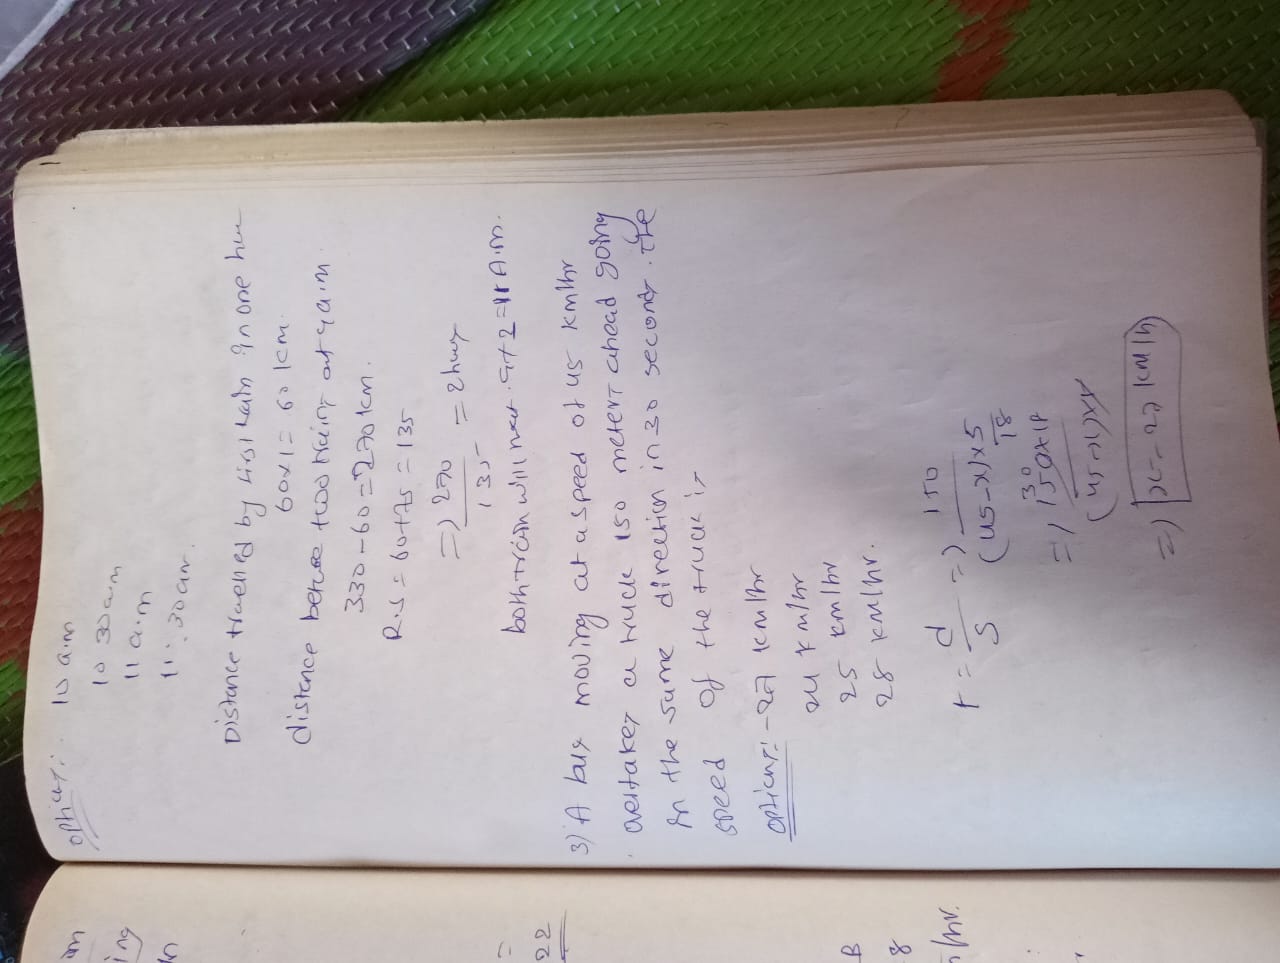 options: 10 a.m
10 30 am
11 a.m
11:30 am.
Distance travelled by first train in one hur
distance between two trains at 9 a.m
60x1 = 60 km.
330-60 = 270 km.
R.S = 60+75 = 135
=) 270/135 = 2 hurs
both train will meet 9+2 = 11 A.m.
3) A bus moving at a speed of 45 km/hr
overtakes a truck 150 meters ahead going
in the same direction in 30 seconds. the
speed of the truck is
options:- 27 km/hr
24 km/hr
25 km/hr
28 km/hr.
t = d/s =) 150/(45-x)x5/18
=) 30 150x18/(45-x)x5
=) x = 27 km/h
22
B
8
/hr.